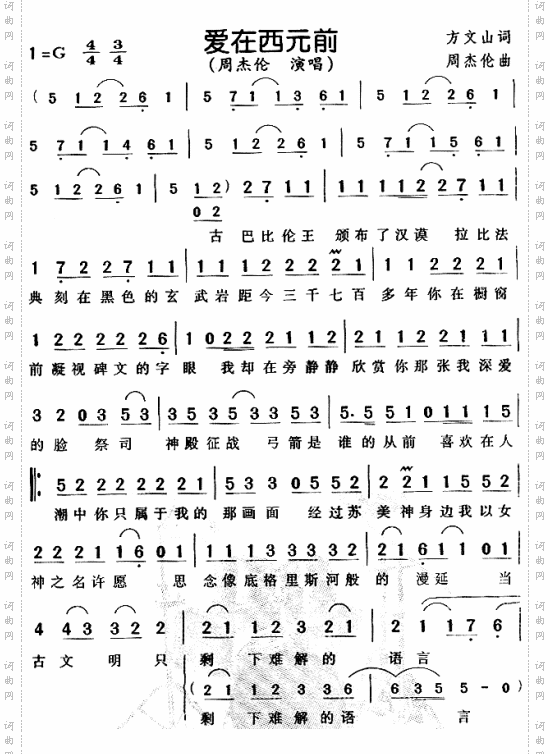 爱在西元前
1=G 4/4 3/4
(周杰伦 演唱)
方文山词
周杰伦曲
(5 1 2 2 6 1 | 5 7 1 1 3 6 1 | 5 1 2 2 6 1 |
5 7 1 1 4 6 1 | 5 1 2 2 6 1 | 5 7 1 1 5 6 1 |
5 1 2 2 6 1 | 5 1 2) 2 7 1 1 | 1 1 1 1 2 2 2 7 1 1 |
0 2
古 巴比伦王 颁布了汉谟 拉比法
1 7 2 2 7 1 1 | 1 1 1 2 2 2 2 1 | 1 2 2 2 2 2 1 |
典刻在黑色的玄 武岩距今三千七百 多年你在橱窗
1 2 2 2 2 2 6 | 1 0 2 2 2 1 1 2 | 1 2 2 2 2 1 2 2 |
前凝视碑文的字眼 我却在旁静静 欣赏你那张我深爱
3 2 0 3 5 3 | 3 5 3 5 3 3 5 3 | 5· 5 5 1 0 1 1 1 5 |
的脸 祭司 神殿征战 弓箭是 谁的从前 喜欢在人
5 2 2 2 2 2 2 2 | 5 3 3 3 0 5 5 2 | 2 2 1 1 5 5 5 2 |
潮中你只属于我的 那画面 经过苏 美神身边我以女
2 2 2 2 1 1 6 0 1 | 1 1 3 3 3 3 3 2 | 2 1 6 1 1 0 1 |
神之名许愿 思 念像底格里斯河般 的 漫延 当
4 4 3 3 2 2 | 2 1 1 2 3 2 1 | 2 1 1 7 6 |
古文 明只 剩 下难解的 语言
(2 1 1 2 3 3 6 | 6 3 5 5 - 0)
剩 下难解的语 言
词曲网